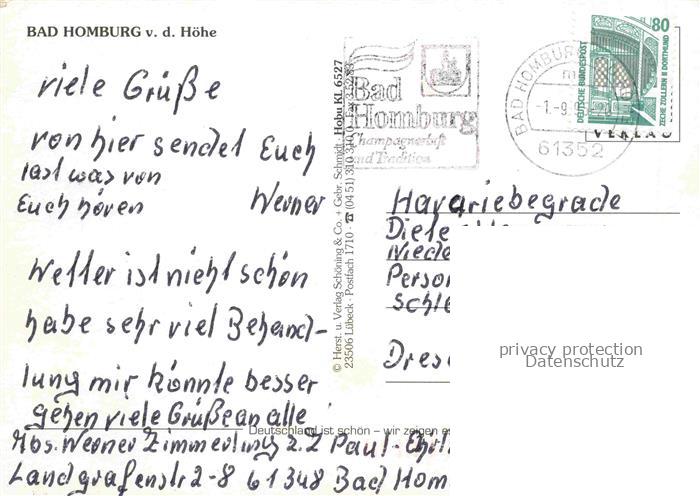 BAD HOMBURG v. d. Höhe
viele Grüße
von hier sendet Euch
last was von
Euch hören Werner
Wetter ist nicht schön
habe sehr viel Behand-
lung mir könnte besser
gehen viele Grüße an alle
Abs. Werner Zimmerling z.Z Paul-Ehrl
Landgrafenstr 2-8 61348 Bad Hom
Deutschland ist schön – wir zeigen e
© Herst. u. Verlag Schöning & Co. + Gebr. Schmidt, Hobu KL 6527
23506 Lübeck · Postfach 1710 · ☎ (04 51) 310 3
Bad
Homburg
Champagnerluft
und Tradition
BAD HOMBURG
-1.-9.
61352
80
DEUTSCHE BUNDESPOST
ZECHE ZOLLERN II DORTMUND
VERLAG
Havariebegrade
Diete
Niede
Person
Schle
Dres
privacy protection
Datenschutz